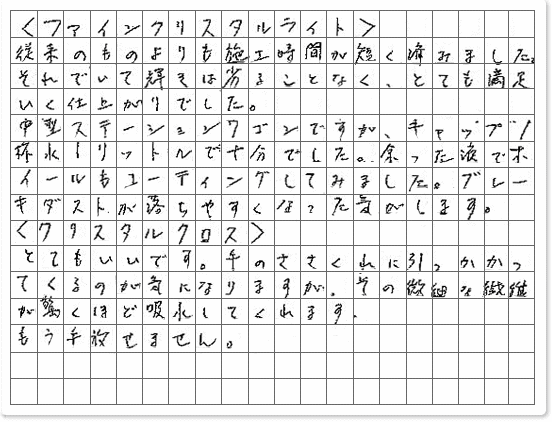 <ファインクリスタルライト>
従来のものよりも施工時間が短く済みました。
それでいて輝きは劣ることなく、とても満足
いく仕上がりでした。
中型ステーションワゴンですが、キャップ1
杯水1リットルで十分でした。余った液でホ
イールもコーティングしてみました。ブレー
キダストが落ちやすくなった気がします。
<クリスタルクロス>
とてもいいです。手のささくれに引っかかっ
てくるのが気になりますが、その微細な繊維
が驚くほど吸水してくれます。
もう手放せません。